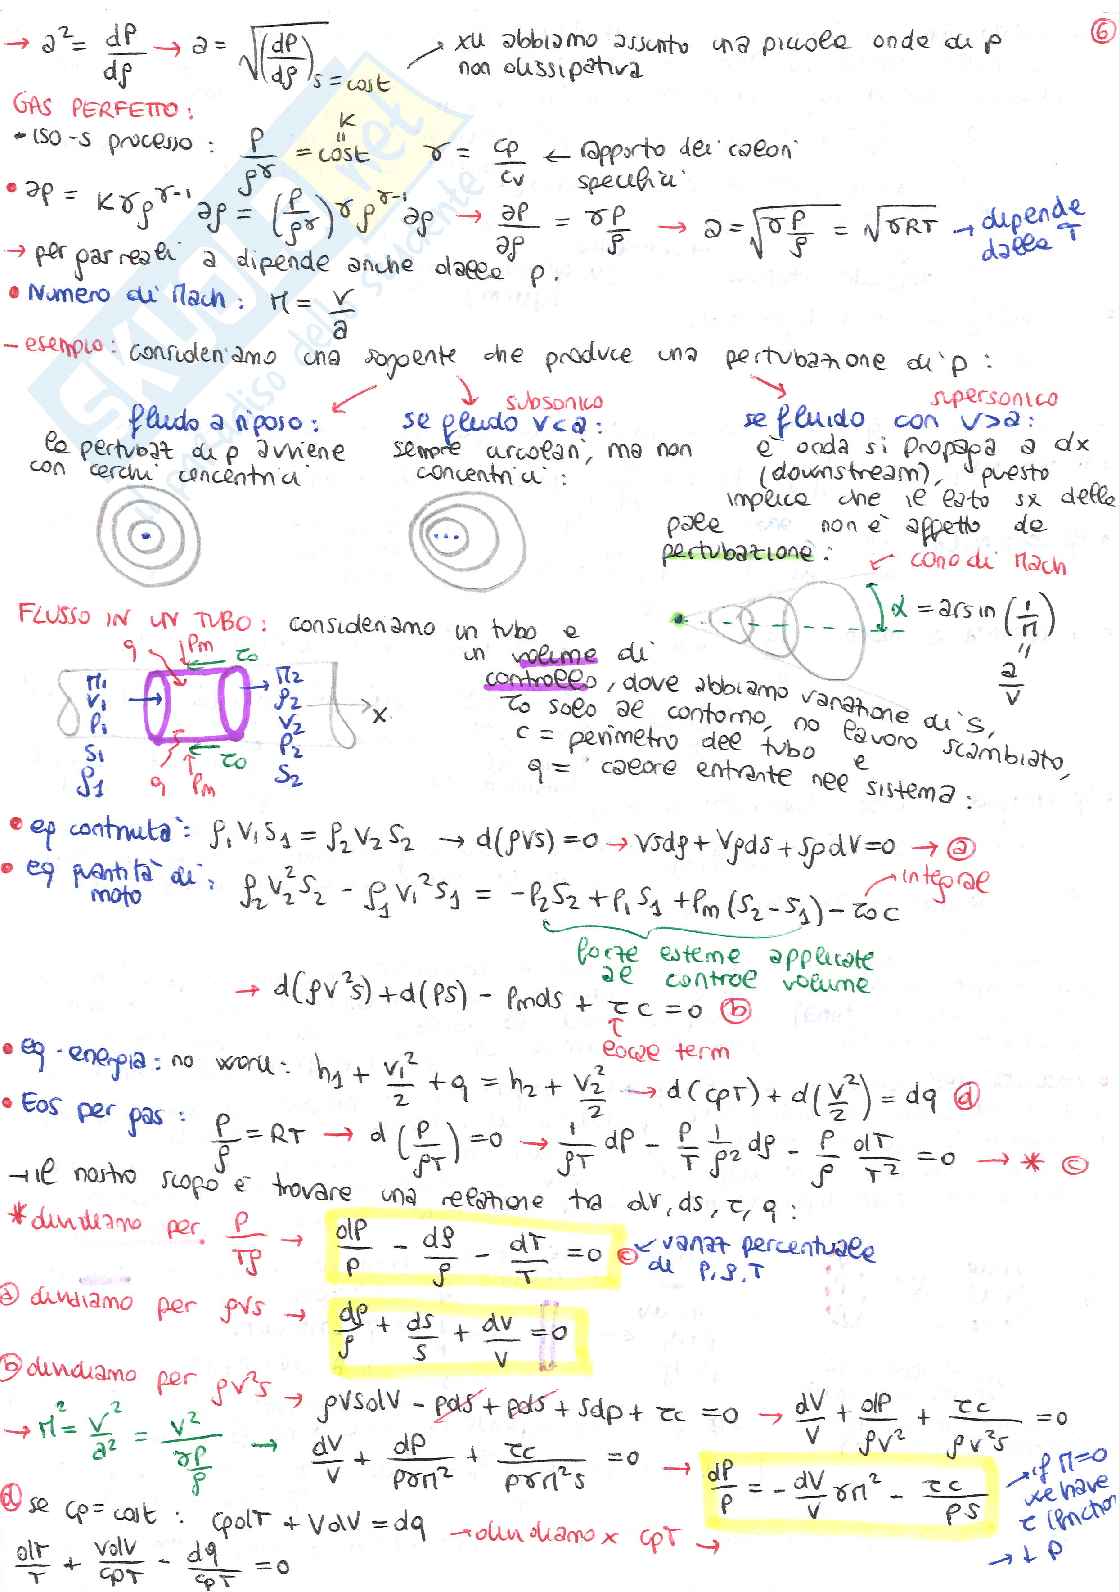 → a² = dP/dρ → a = √(dP/dρ)s=cost ↗ xu abbiamo assunto una piccola onda di p
non dissipativa
6
GAS PERFETTO:
- iso-s processo: P/ρ^γ = cost = K γ = cp/cv ← rapporto dei calori
specifici
• ∂p = Kγρ^(γ-1) ∂ρ = (P/ρ^γ) γ ρ^(γ-1) ∂ρ → ∂P/∂ρ = γ P/ρ → a = √(γ P/ρ) = √(γRT) → dipende
dalla T
→ per gas reali a dipende anche dalla p.
• Numero di Mach: M = V/a
- esempio: consideriamo una sorgente che produce una pertubazione di p:
fluido a riposo:
la perturbaz di p avviene
con cerchi concentrici
subsonico
se fluido V<a:
sempre circolari, ma non
concentrici:
supersonico
se fluido con V>a:
è onda si propaga a dx
(downstream), questo
implica che il lato sx della
non è affetto da
pertubazione:
cono di Mach
α = arsin (1/M)
=
a/V
FLUSSO IN UN TUBO: consideriamo un tubo e
un volume di
controllo, dove abbiamo variazione di s,
τo solo al contorno, no lavoro scambiato,
c = perimetro del tubo e
q = calore entrante nel sistema:
q Pm τo
M1 V1 P1 S1 ρ1
M2 ρ2 V2 P2 S2
x
q Pm τo
• eq continuità: ρ1V1S1 = ρ2V2S2 → d(ρVs)=0 → Vsdρ + Vρds + SρdV=0 → (a)
• eq quantità di
moto: ρ2V2²S2 - ρ1V1²S1 = -P2S2 + P1S1 + Pm(S2-S1) - τoc
integral
forze esterne applicate
al control volume
→ d(ρV²S) + d(PS) - Pmds + τc = 0 (b)
• eq. energia: no work: h1 + V1²/2 + q = h2 + V2²/2 → d(cpT) + d(V²/2) = dq (d)
• Eos per gas: P/ρ = RT → d(P/ρT) = 0 → 1/ρT dP - P/T 1/ρ² dρ - P/ρ dT/T² = 0 → * (c)
→ il nostro scopo è trovare una relazione tra dV, ds, τ, q:
* dividiamo per P/Tρ → dP/P - dρ/ρ - dT/T = 0 (c) ← variaz percentuale
di P, ρ, T
(a) dividiamo per ρVs → dρ/ρ + ds/s + dV/V = 0
(b) dividiamo per ρV²s → ρVsdV - pds + pds + sdp + τc = 0 → dV/V + dP/ρV² + τc/ρV²s = 0
→ M² = V²/a² = V²/(γP/ρ) → dV/V + dP/PγM² + τc/PγM²s = 0 → dP/P = -dV/V γM² - τc/PS
if M=0
we have
τ function
→ ↓ P
(d) se cp=cost: cpdT + VdV = dq → dividiamo x cpT →
dT/T + VdV/cpT - dq/cpT = 0